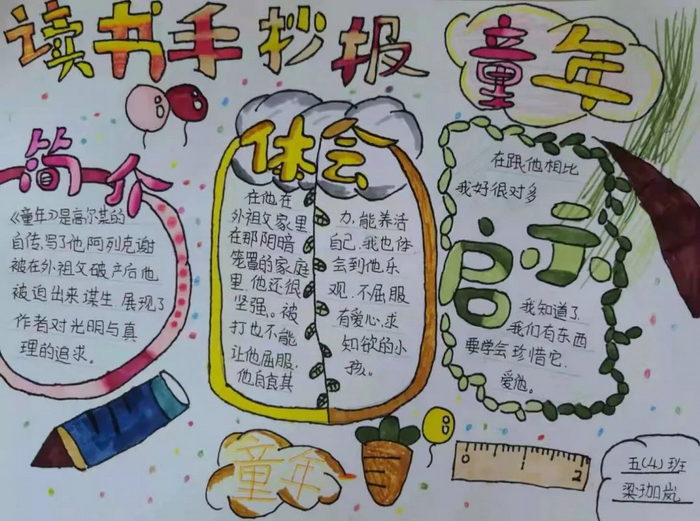 读书手抄报
童年
简介
《童年》是高尔基的
自传.写了他,阿列克谢
被在外祖父破产后他
被迫出来谋生.展现了
作者对光明与真
理的追求。
体会
在他在
外祖父家里
在那阴暗
笼罩的家庭
里.他还很
坚强。被
打也不能
让他屈服,
他自食其
力,能养活
自己.我也体
会到他乐
观.不屈服
有爱心.求
知欲的小
孩。
启示
在跟他相比
我好很对多
我知道了
我们有东西
要学会珍惜它.
爱他。
童年
0 1 2
五(4)班
梁珈岚